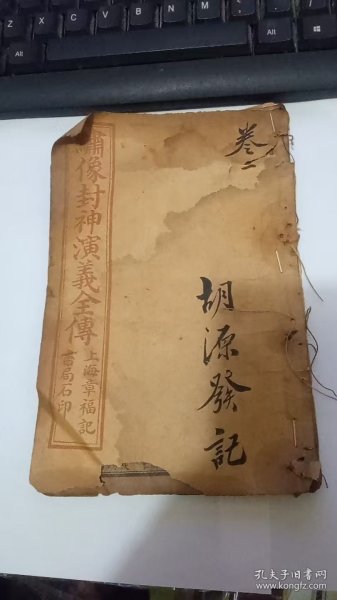 卷二
胡源發記
繡像封神演義全傳
上海章福記
書局石印
孔夫子旧书网
www.kongfz.com